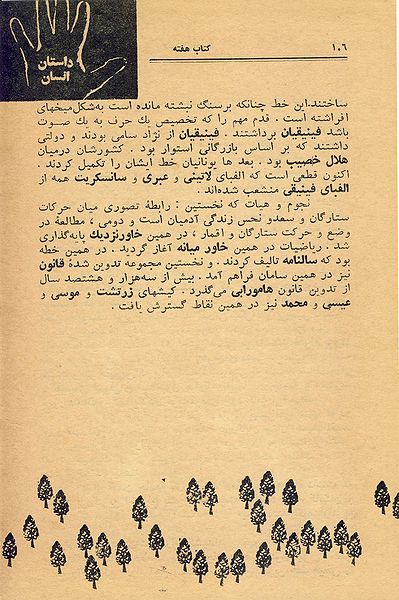 داستان
انسان
کتاب هفته
۱۰۶
ساختند.این خط چنانکه برسنگ نبشته مانده است به‌شکل‌میخهای
افراشته است . قدم مهم را که تخصیص یك حرف به یك صوت
باشد فینیقیان برداشتند . فینیقیان از نژاد سامی بودند و دولتی
داشتند که بر اساس بازرگانی استوار بود . کشورشان درمیان
هلال خصیب بود . بعد ها یونانیان خط ایشان را تکمیل کردند .
اکنون قطعی است که الفبای لاتینی و عبری و سانسکریت همه از
الفبای فینیقی منشعب شده‌اند .
نجوم و هیات که نخستین : رابطهٔ تصوری میان حرکات
ستارگان و سعدو نحس زندگی آدمیان است و دومی ، مطالعهٔ در
وضع و حرکت ستارگان و اقمار ، در همین خاورنزدیك پایه‌گذاری
شد . ریاضیات در همین خاور میانه آغاز گردید . در همین خطه
بود که سالنامه تالیف کردند . و نخستین مجموعه تدوین شدهٔ قانون
نیز در همین سامان فراهم آمد . بیش از سه‌هزار و هشتصد سال
از تدوین قانون هامورابی می‌گذرد . کیشهای زرتشت و موسی و
عیسی و محمد نیز در همین نقاط گسترش یافت .